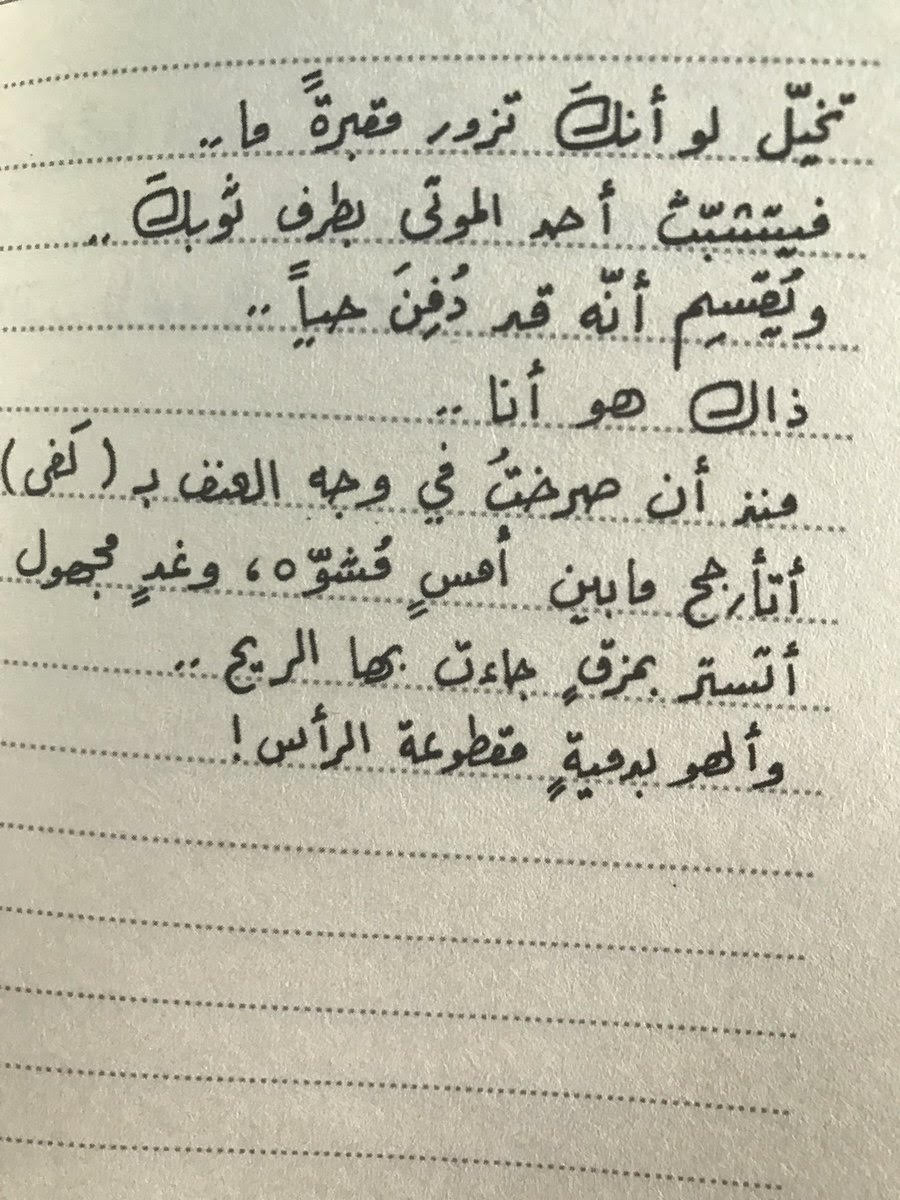 تخيّل لو أنكَ تزور مقبرةً ما..
فيتشبّث أحد الموتى بطرف ثوبكَ ..
ويُقسِم أنّه قد دُفِنَ حياً ..
ذاك هو أنا ..
منذ أن صرختُ في وجه العنف بـ (كَفى)
أتأرجح مابين أمسٍ مُشوّه، وغدٍ مجهول
أتستر بمزقٍ جاءت بها الريح ..
وألهو بدميةٍ مقطوعة الرأس!